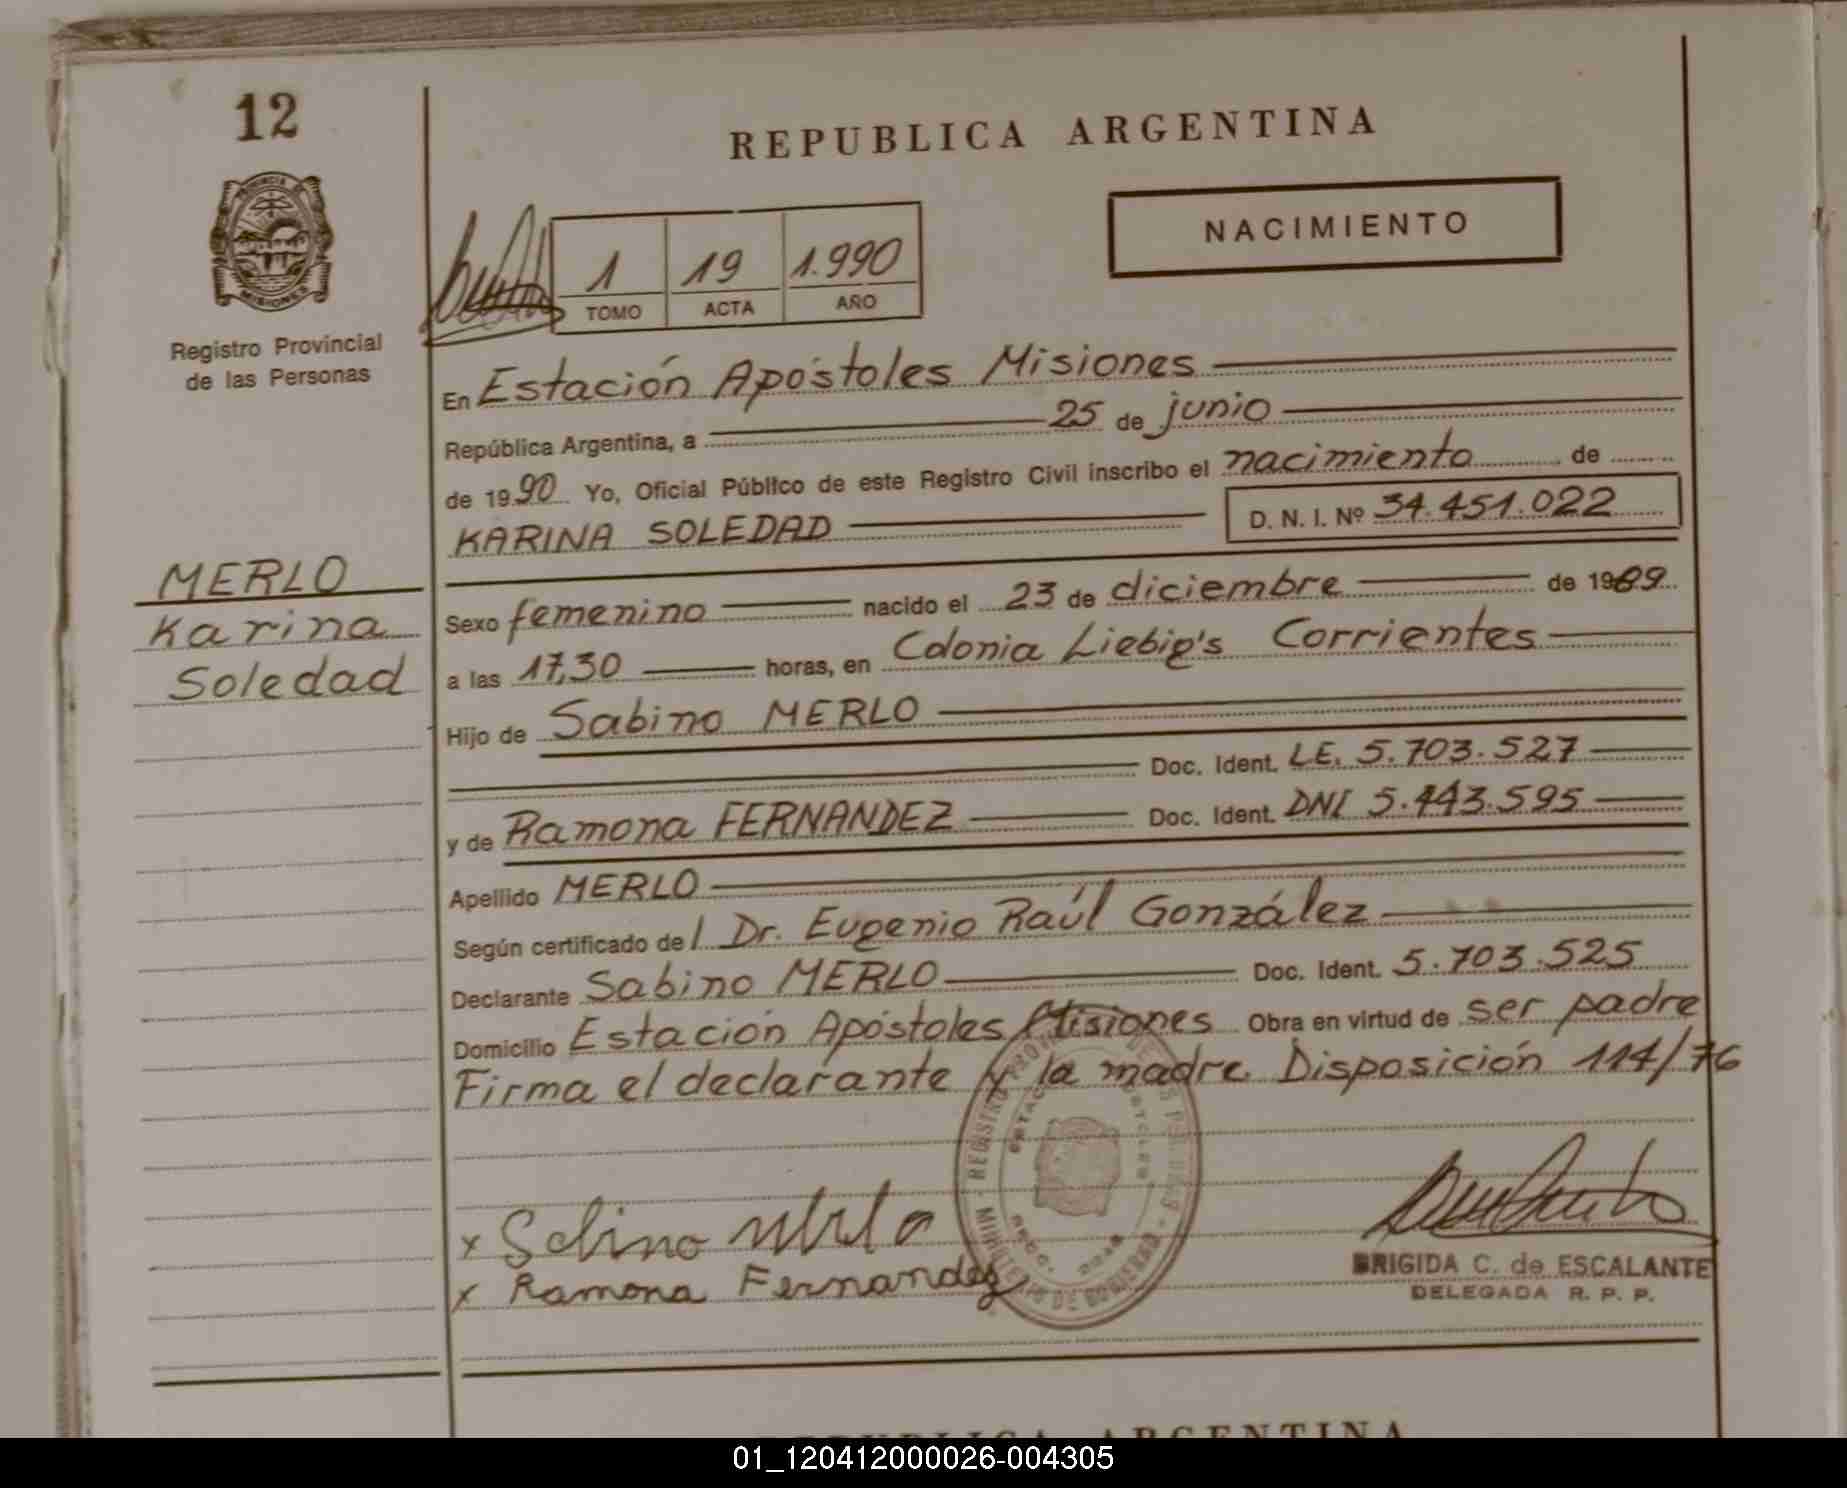 12
REPUBLICA ARGENTINA
PROVINCIA DE
MISIONES
Registro Provincial
de las Personas
NACIMIENTO
1 19 1.990
TOMO ACTA AÑO
En Estación Apóstoles Misiones
República Argentina, a 25 de junio
de 1990 Yo, Oficial Público de este Registro Civil inscribo el nacimiento de
KARINA SOLEDAD D. N. I. Nº 34.451.022
MERLO
Karina
Soledad
Sexo femenino nacido el 23 de diciembre de 1989
a las 17,30 horas, en Colonia Liebig's Corrientes
Hijo de Sabino MERLO
Doc. Ident. LE. 5.703.527
y de Ramona FERNANDEZ Doc. Ident. DNI 5.443.595
Apellido MERLO
Según certificado del Dr. Eugenio Raúl González
Declarante Sabino MERLO Doc. Ident. 5.703.525
Domicilio Estación Apóstoles Misiones Obra en virtud de ser padre
Firma el declarante y la madre. Disposición 114/76
x Sabino Merlo
x Ramona Fernandez
BRIGIDA C. de ESCALANTE
DELEGADA R. P. P.
REPUBLICA ARGENTINA
01_120412000026-004305